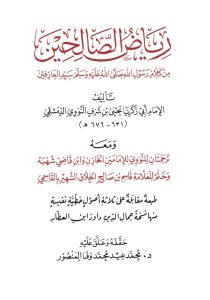 رياض الصالحين
من كلام رسول الله صلى الله عليه وسلم سيد العارفين
تأليف
الإمام أبي زكريا يحيى بن شرف النووي الدمشقي
(٦٣١ - ٦٧٦ هـ)
ومعه
ترجمتان للنووي للإمامين الخازن وابن قاضي شهبة
وختم للعلامة قاسم بن صالح الحلاق الشهير بالقاسمي
طبعة مقابلة على ثلاثة أصول خطية نفيسة
منها نسخة جمال الدين داود ابن العطار
حققه وعلق عليه
د. محمد عيد محمد وفا المنصور